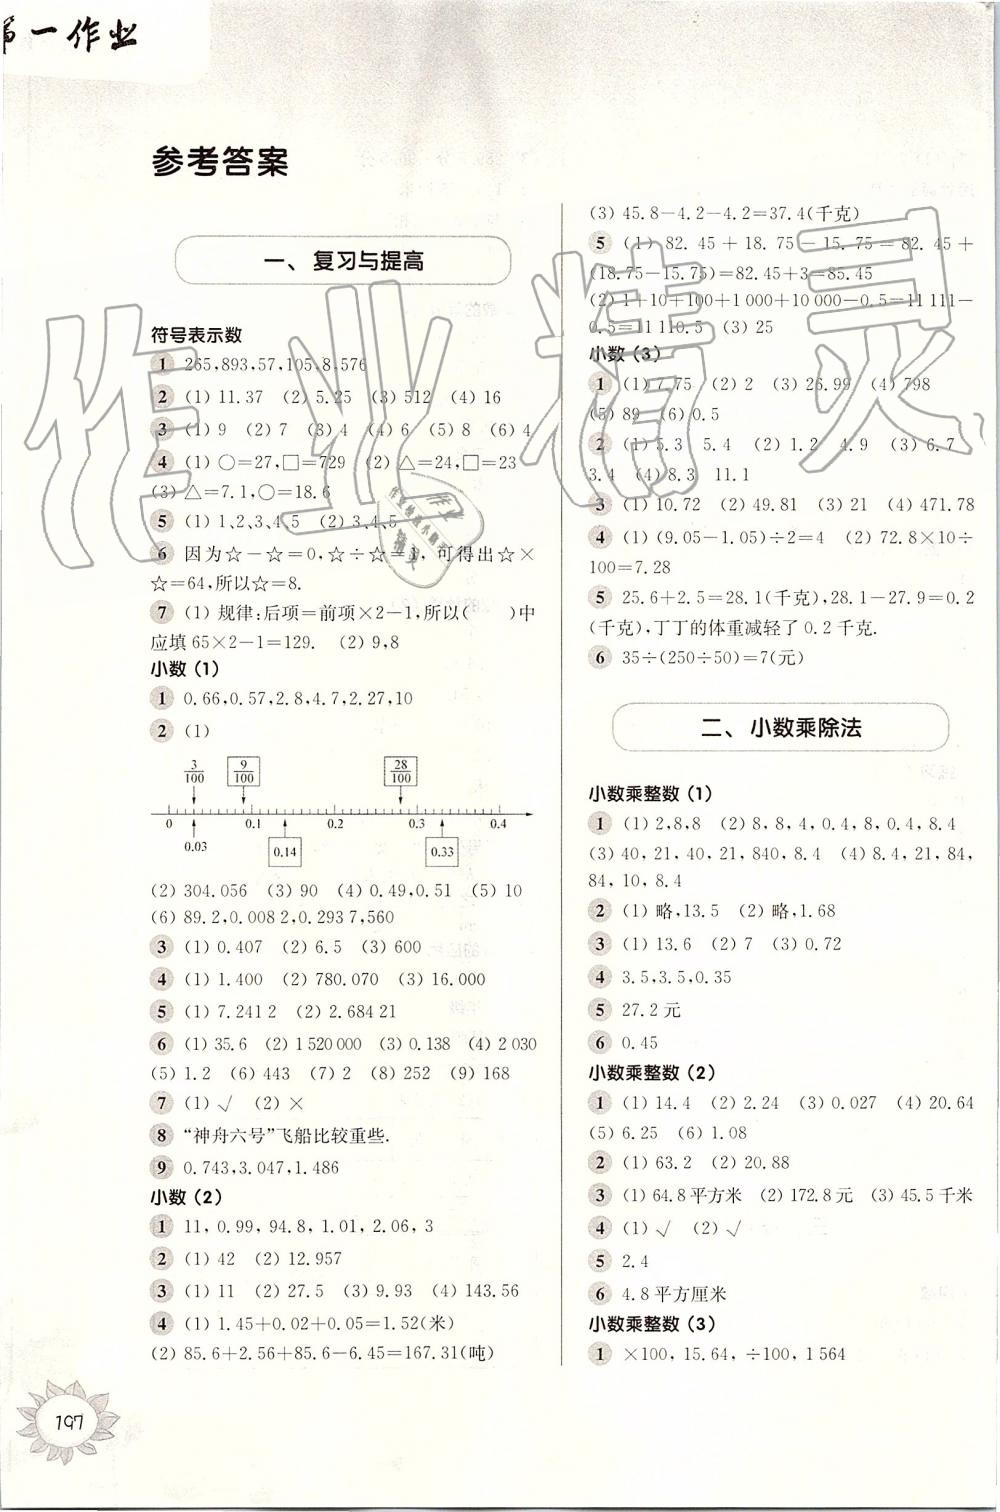 第一作业
参考答案
一、复习与提高
符号表示数
1 265,893,57,105,8,576
2 (1) 11.37 (2) 5.25 (3) 512 (4) 16
3 (1) 9 (2) 7 (3) 4 (4) 6 (5) 8 (6) 4
4 (1) ○=27,□=729 (2) △=24,□=23
(3) △=7.1,○=18.6
5 (1) 1、2、3、4、5 (2) 3、4、5
6 因为☆-☆=0,☆÷☆=1,可得出☆×
☆=64,所以☆=8.
7 (1) 规律:后项=前项×2-1,所以( )中
应填65×2-1=129. (2) 9,8
小数(1)
1 0.66,0.57,2.8,4.7,2.27,10
2 (1)
3/100 9/100 28/100
0 0.1 0.2 0.3 0.4
0.03 0.14 0.33
(2) 304.056 (3) 90 (4) 0.49,0.51 (5) 10
(6) 89.2,0.008 2,0.293 7,560
3 (1) 0.407 (2) 6.5 (3) 600
4 (1) 1.400 (2) 780.070 (3) 16.000
5 (1) 7.241 2 (2) 2.684 21
6 (1) 35.6 (2) 1 520 000 (3) 0.138 (4) 2 030
(5) 1.2 (6) 443 (7) 2 (8) 252 (9) 168
7 (1) √ (2) ×
8 “神舟六号”飞船比较重些.
9 0.743,3.047,1.486
小数(2)
1 11,0.99,94.8,1.01,2.06,3
2 (1) 42 (2) 12.957
3 (1) 11 (2) 27.5 (3) 9.93 (4) 143.56
4 (1) 1.45+0.02+0.05=1.52(米)
(2) 85.6+2.56+85.6-6.45=167.31(吨)
(3) 45.8-4.2-4.2=37.4(千克)
5 (1) 82.45+18.75-15.75=82.45+
(18.75-15.75)=82.45+3=85.45
(2) 1+10+100+1 000+10 000-0.5=11 111-
0.5=11 110.5 (3) 25
小数(3)
1 (1) 7.75 (2) 2 (3) 26.99 (4) 798
(5) 89 (6) 0.5
2 (1) 5.3 5.4 (2) 1.2 4.9 (3) 6.7
3.4 (4) 8.3 11.1
3 (1) 10.72 (2) 49.81 (3) 21 (4) 471.78
4 (1) (9.05-1.05)÷2=4 (2) 72.8×10÷
100=7.28
5 25.6+2.5=28.1(千克),28.1-27.9=0.2
(千克),丁丁的体重减轻了0.2千克.
6 35÷(250÷50)=7(元)
二、小数乘除法
小数乘整数(1)
1 (1) 2,8,8 (2) 8,8,4,0.4,8,0.4,8.4
(3) 40,21,40,21,840,8.4 (4) 8.4,21,84,
84,10,8.4
2 (1) 略,13.5 (2) 略,1.68
3 (1) 13.6 (2) 7 (3) 0.72
4 3.5,3.5,0.35
5 27.2元
6 0.45
小数乘整数(2)
1 (1) 14.4 (2) 2.24 (3) 0.027 (4) 20.64
(5) 6.25 (6) 1.08
2 (1) 63.2 (2) 20.88
3 (1) 64.8平方米 (2) 172.8元 (3) 45.5千米
4 (1) √ (2) √
5 2.4
6 4.8平方厘米
小数乘整数(3)
1 ×100,15.64,÷100,1 564
197
作业精灵